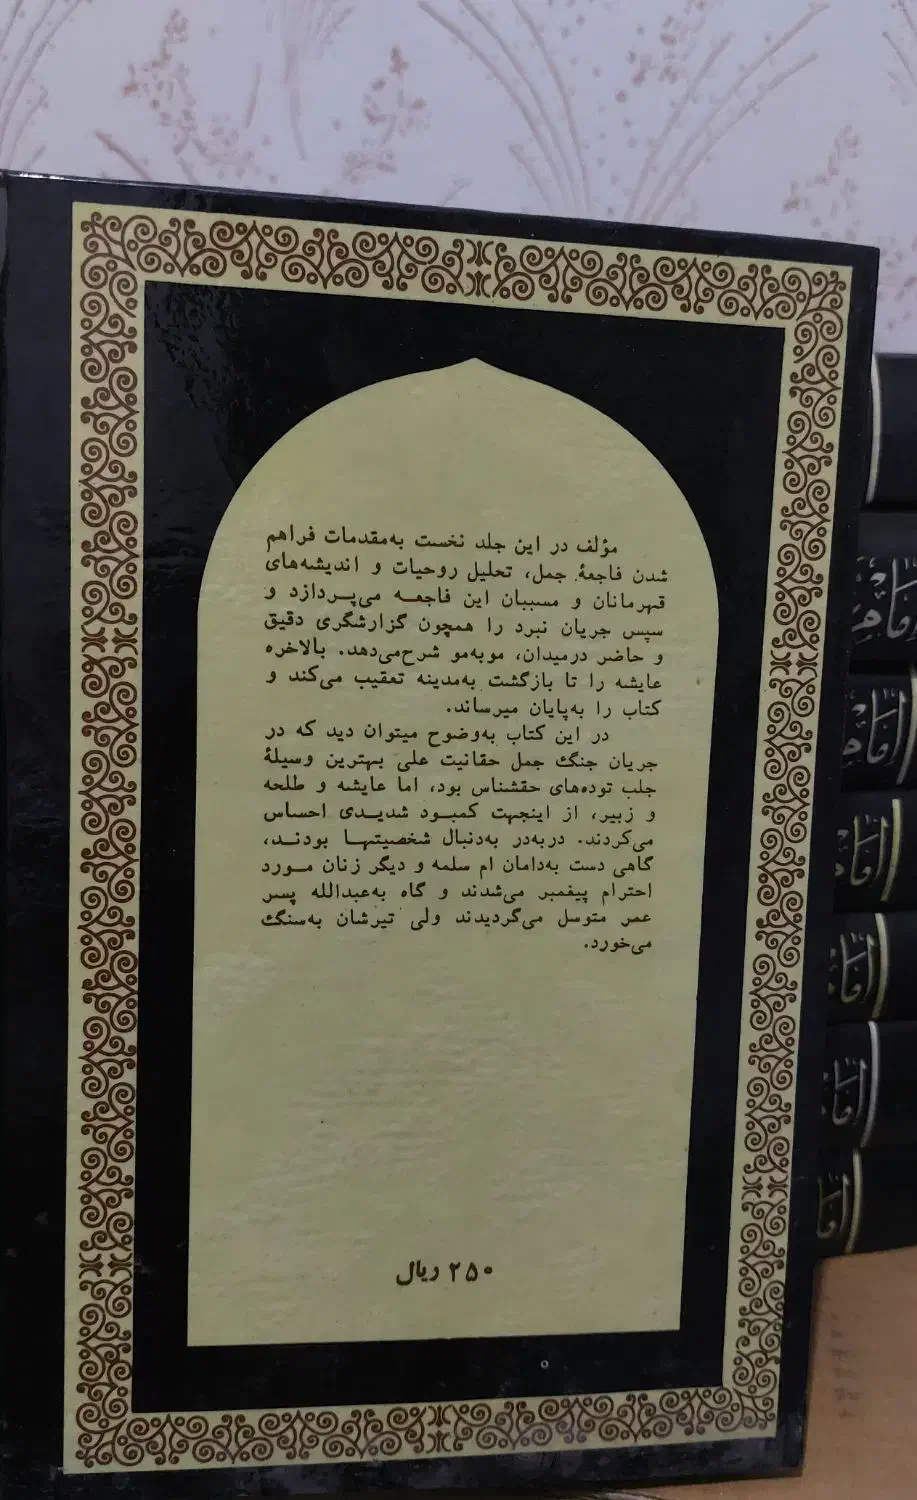 مؤلف در این جلد نخست به‌مقدمات فراهم
شدن فاجعهٔ جمل، تحلیل روحیات و اندیشه‌های
قهرمانان و مسببان این فاجعه می‌پردازد و
سپس جریان نبرد را همچون گزارشگری دقیق
و حاضر درمیدان، موبه‌مو شرح‌می‌دهد. بالاخره
عایشه را تا بازگشت به‌مدینه تعقیب می‌کند و
کتاب را به‌پایان میرساند.
در این کتاب به‌وضوح میتوان دید که در
جریان جنگ جمل حقانیت علی بهترین وسیلهٔ
جلب توده‌های حقشناس بود، اما عایشه و طلحه
و زبیر، از اینجهت کمبود شدیدی احساس
می‌کردند. دربه‌در به‌دنبال شخصیتها بودند،
گاهی دست به‌دامان ام سلمه و دیگر زنان مورد
احترام پیغمبر می‌شدند و گاه به‌عبدالله پسر
عمر متوسل می‌گردیدند ولی تیرشان به‌سنگ
می‌خورد.
۲۵۰ ریال
امام
امام
اما
اما
اما
اما